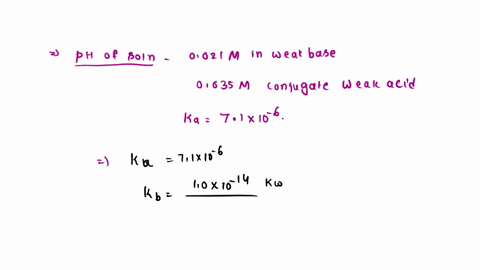 ⇒ pH of soln - 0.021 M in weat base
0.035 M conjugate weak acid
Ka = 7.1 × 10⁻⁶.
⇒) Ka = 7.1×10⁻⁶
Kb = 1.0 × 10⁻¹⁴ Kw